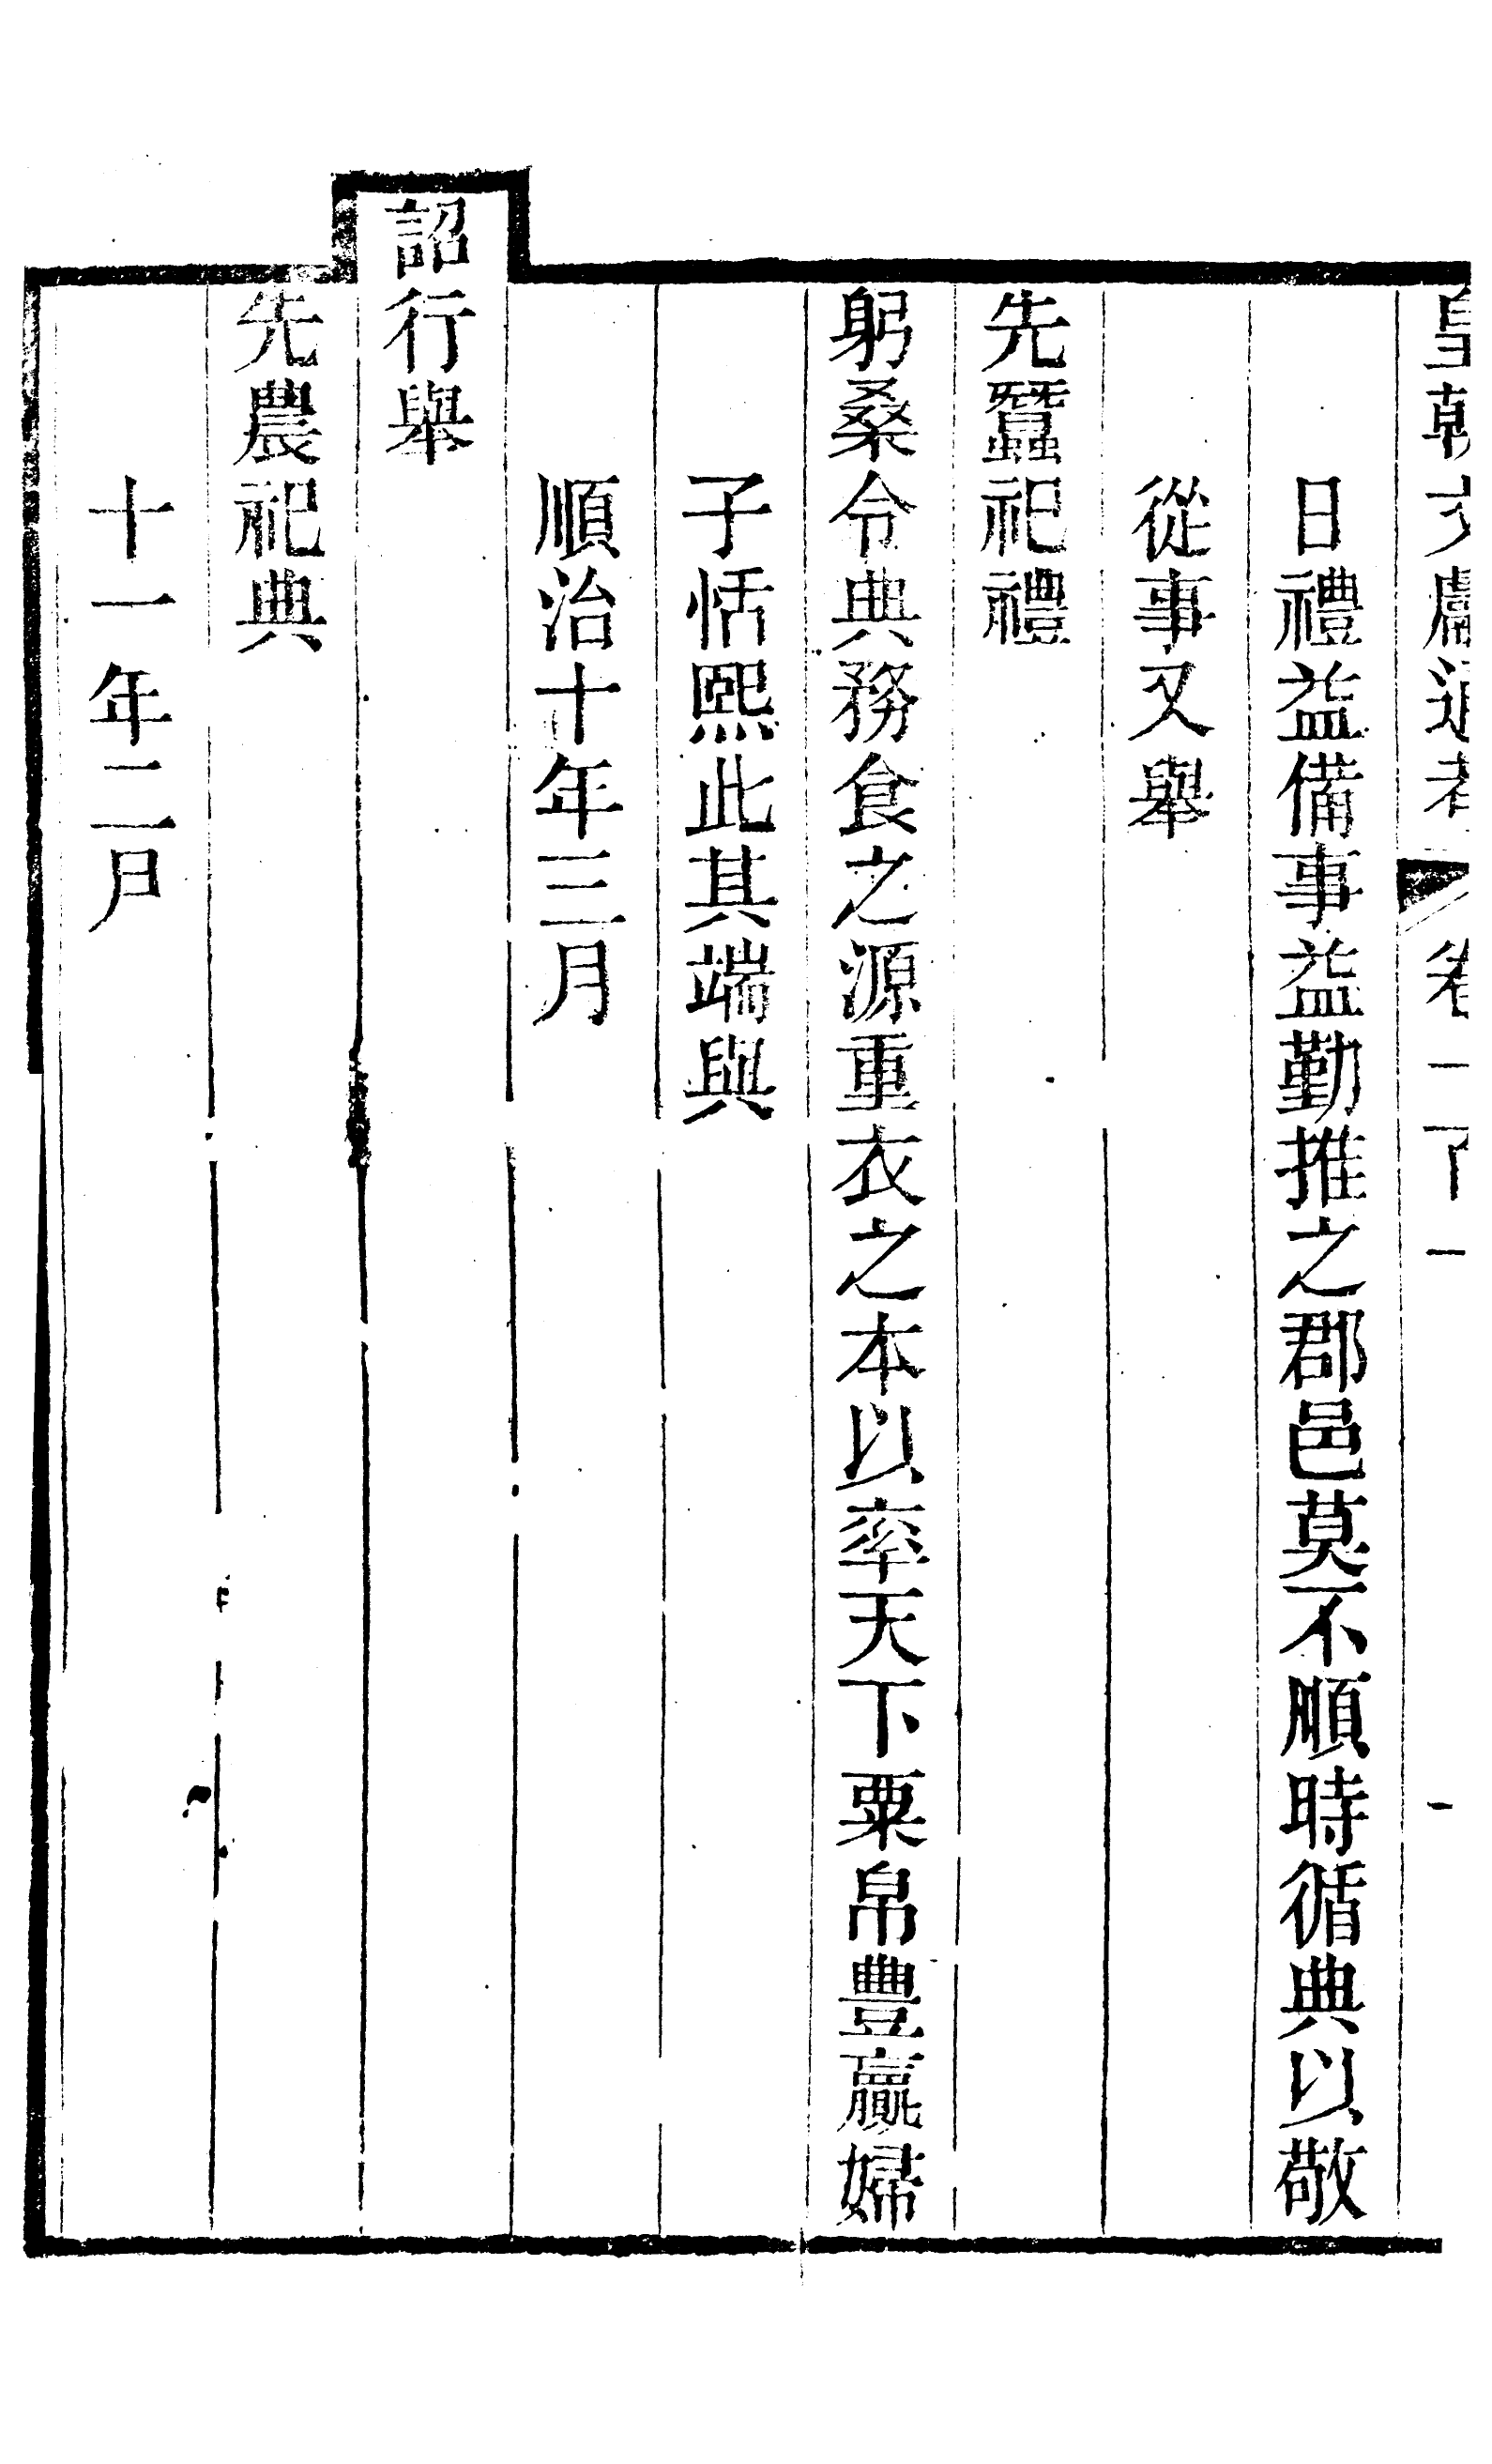 皇朝文獻通考 卷一百十一
日禮益備事益勤推之郡邑莫不順時循典以敬
從事又舉
先蠶祀禮
躬桑令典務食之源重衣之本以率天下粟帛豐贏婦
子恬熙此其端與
順治十年三月
詔行舉
先農祀典
十一年二月